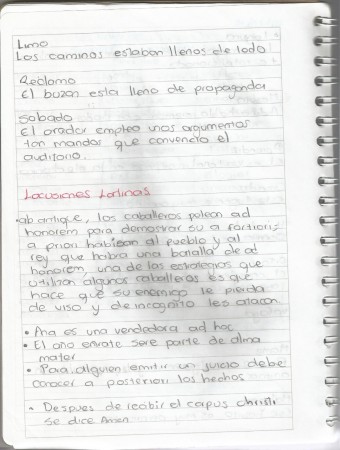 Limo
Los caminos estaban llenos de lodo
Reclamo
El buzon esta lleno de propaganda
Sobado
El orador empleo unos argumentos
tan mandos que convencio el
auditorio.
Locuciones Latinas
• ab antique, los caballeros pelean ad
honorem para demostrar su a fortiori
a priori habisan al pueblo y al
rey que habra una batalla de ad
honorem, una de las estrategias que
utilizan algunos caballeros es que
hace que su enemigo le pierda
de viso y de incognito les atacan
• Ana es una vendedora ad hoc
• El año entrate sere parte de alma
mater
• Para alguien emitir un juicio debe
conocer a posteriori los hechos
• Despues de recibir el capus christi
se dice Amen